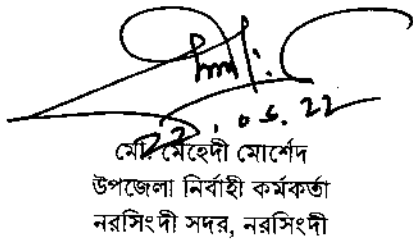 ২২.০৫.২২
মোঃ মেহেদী মোর্শেদ
উপজেলা নির্বাহী কর্মকর্তা
নরসিংদী সদর, নরসিংদী